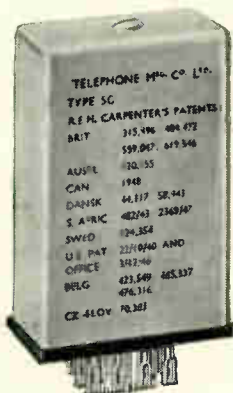 TELEPHONE Mfg. Co. Ltd.
TYPE 5G
R.E.H. CARPENTER'S PATENTS:
BRIT 315,496 484,472
559,047 619,546
AUSTL
CAN 1948
DANSK 58,943
S. AFRIC 482/43 2369/47
SWED 124,354
U.S. PAT 22/10/40 AND
OFFICE
BELG 423,549 465,337
476,316
CZ-SLOV 70,303